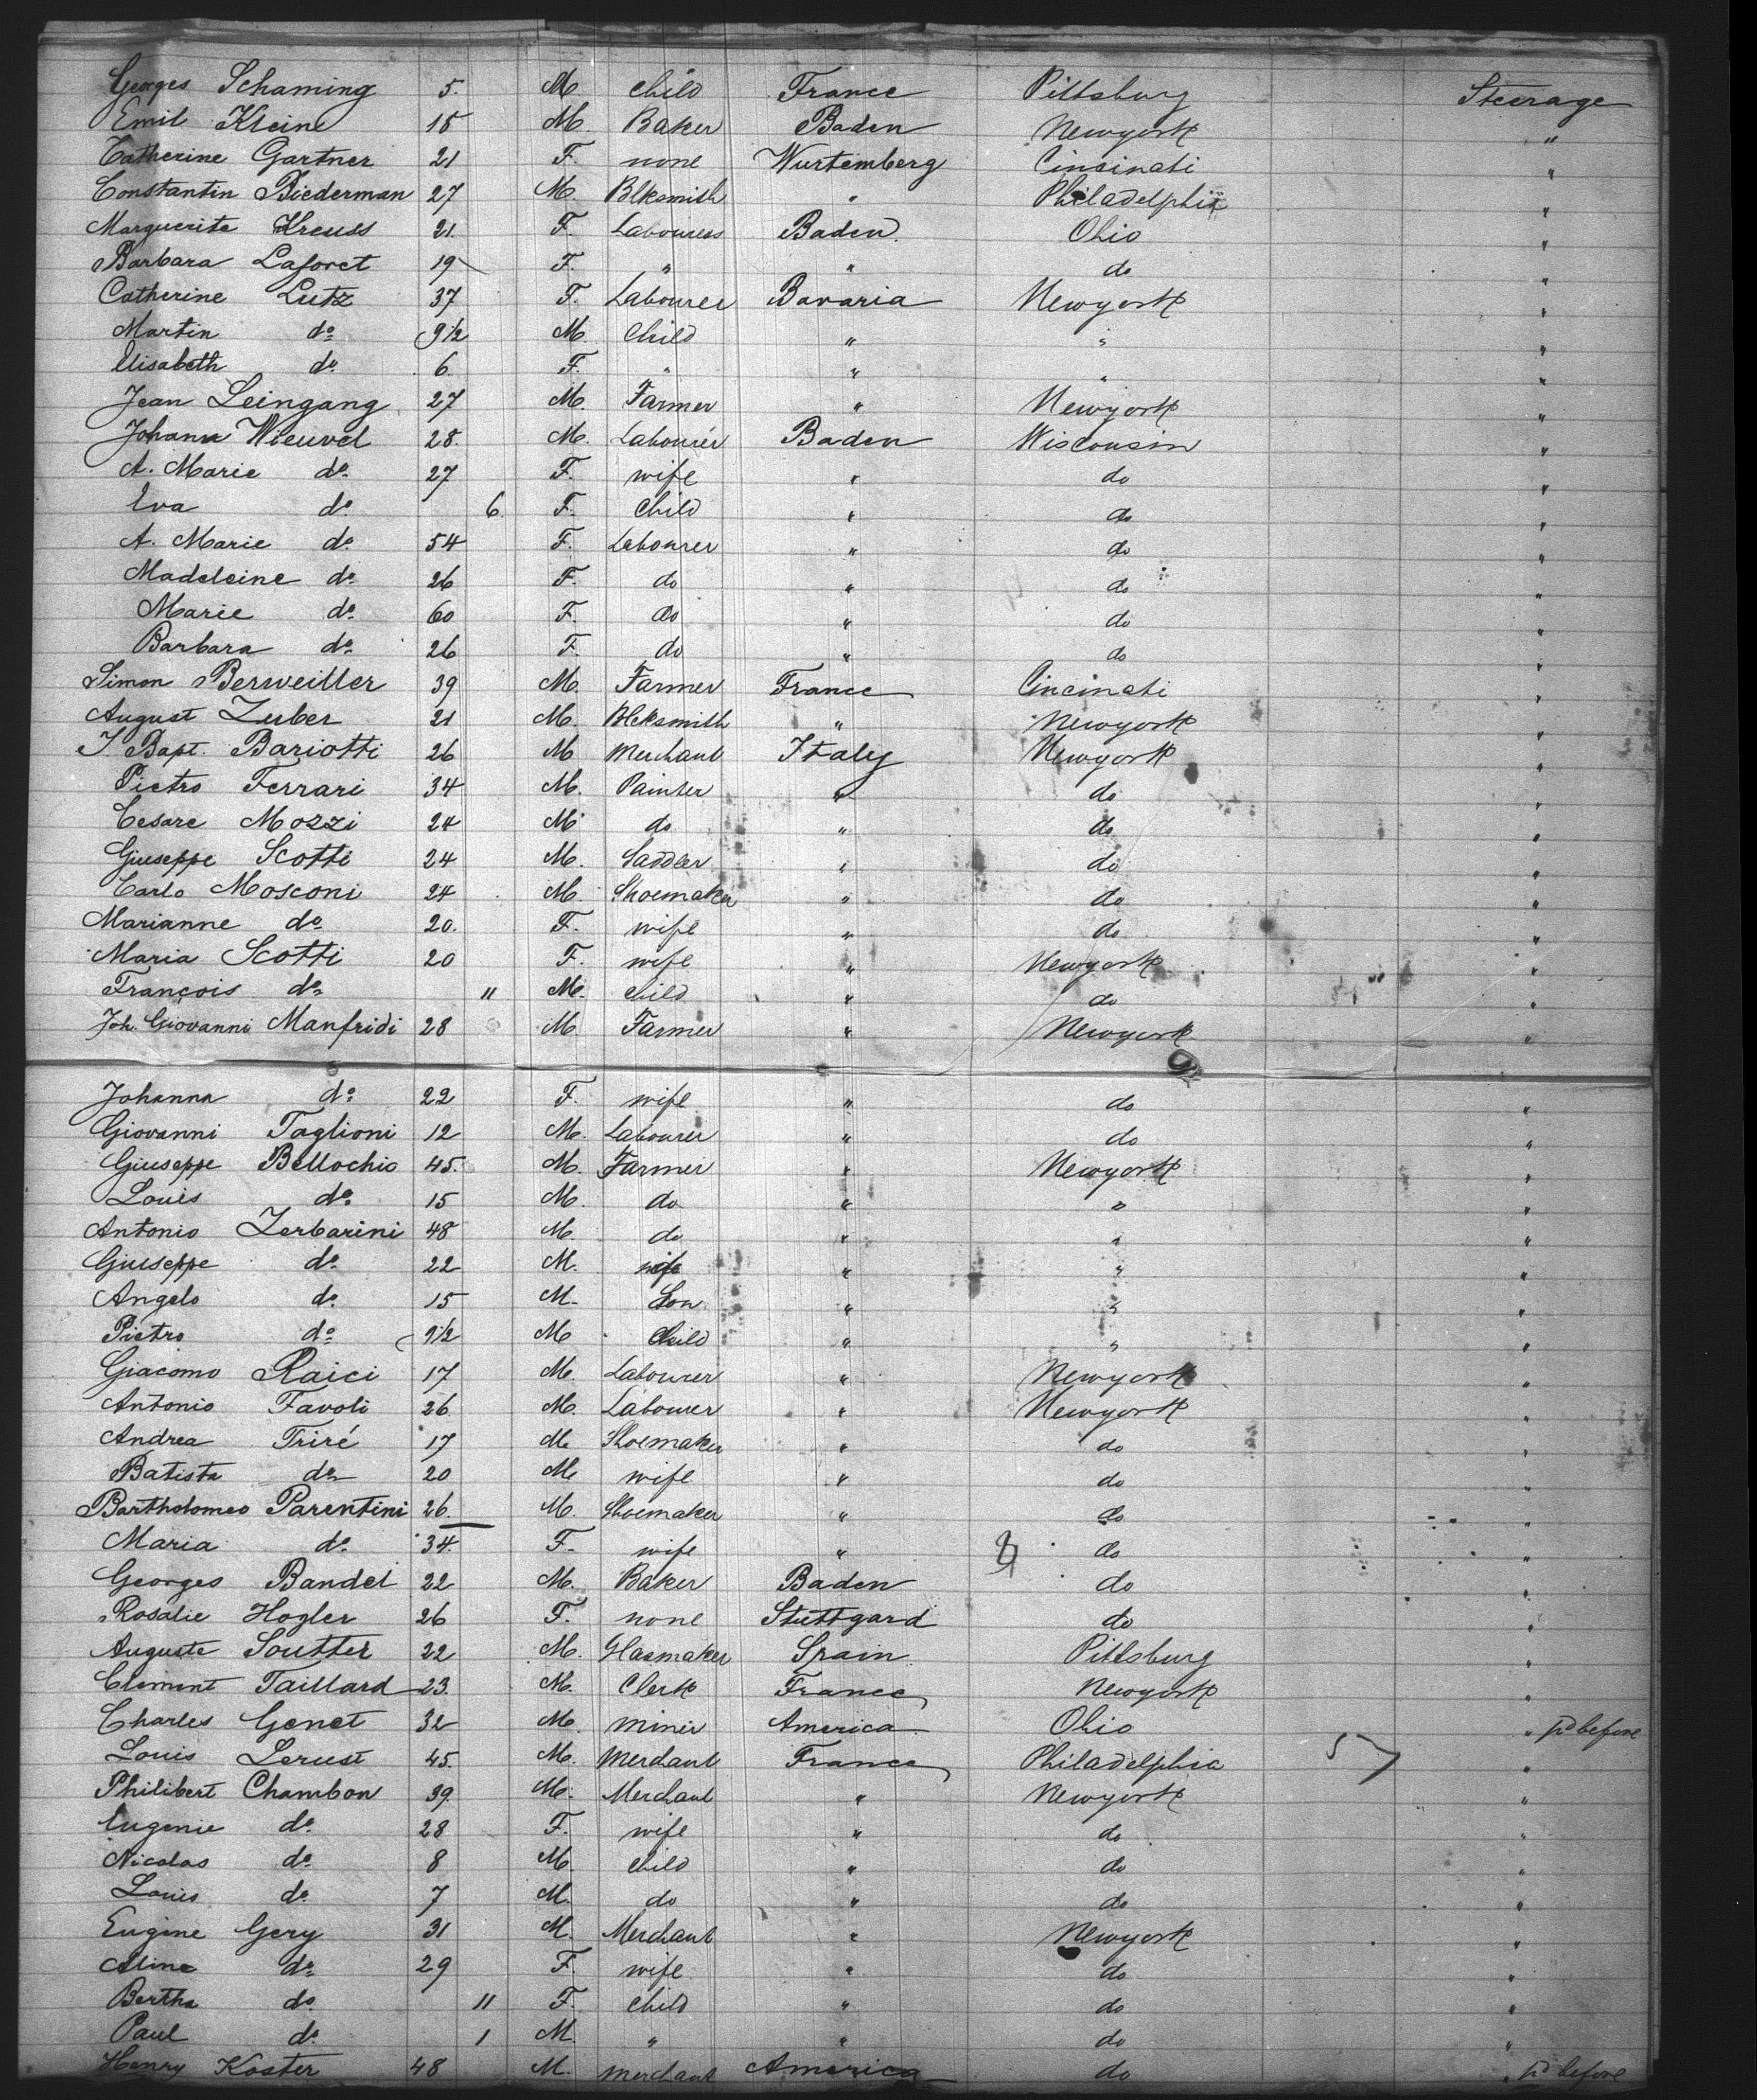 Georges Schaming 5. M. Child France Pittsburg Steerage
Emil Kleine 15 M. Baker Baden Newyork "
Catherine Gartner 21 F. none Wurtemberg Cincinati "
Constantin Biederman 27 M. Blksmith " Philadelphia "
Marguerite Kreuss 21. F. Labouress Baden. Ohio "
Barbara Laforet 19 F. " " do "
Catherine Lutz 37 F. Labourer Bavaria Newyork "
Martin do 9 1/2 M. Child " " "
Elisabeth do. 6. F. " " " "
Jean Leingang 27 M. Farmer " Newyork "
Johann Wieuvel 28. M. Labourer Baden Wisconsin "
A. Marie do. 27 F. wife " do "
Eva do. 6. F. Child " do "
A. Marie do. 54 F. Labourer " do "
Madeleine do. 26 F. do " do "
Marie do. 60 F. do " do "
Barbara do. 26 F. do " do "
Simon Berweiller 39 M. Farmer France Cincinati "
August Zerber 21 M. Blcksmith " Newyork "
J. Bapt. Bariotti 26 M Merchant Italy Newyork "
Pietro Ferrari 34 M. Painter " do "
Cesare Mozzi 24 M. do " do "
Giuseppe Scotti 24 M. Saddler " do "
Carlo Mosconi 24 M. Shoemaker " do "
Marianne do. 20. F. wife " do "
Maria Scotti 20 F. wife " Newyork "
François do. 11 M. child " do "
Joh. Giovanni Manfridi 28 M. Farmer " Newyork "
Johanna do. 22 F. wife " do "
Giovanni Taglioni 12 M. Labourer " do "
Giuseppe Bellochio 45. M. Farmer " Newyork "
Louis do. 15 M. do " " "
Antonio Zerbarini 48 M. do " " "
Giuseppe do. 22 M. wife " " "
Angelo do. 15 M. Son " " "
Pietro do. 9 1/2 M. Child " " "
Giacomo Raici 17 M. Labourer " Newyork "
Antonio Favoli 26. M. Labourer " Newyork "
Andrea Triré 17 M. Shoemaker " do "
Batista do. 20 M. wife " do "
Bartholomeo Parentini 26. M. Shoemaker " do "
Maria do. 34. F. wife " do "
Georges Bandel 22 M. Baker Baden do "
Rosalie Hogler 26 F. none Stuttgard do "
Auguste Soutter 22 M. Glasmaker Spain Pittsburg "
Clement Taillard 23. M. Clerk France Newyork "
Charles Genet 32 M. miner America Ohio " pd before
Louis Lerust 45. M. Merchant France Philadelphia 57 "
Philibert Chambon 39. M. Merchant " Newyork "
Eugenie do. 28 F. wife " do "
Nicolas do. 8 M. child " do "
Louis do. 7 M. do " do "
Eugine Gery 31 M. Merchant " Newyork "
Aline do. 29 F. wife " do "
Bertha do. 11 F. Child " do "
Paul do. 1 M. " " do "
Henry Koster 48 M. merchant America do " pd before